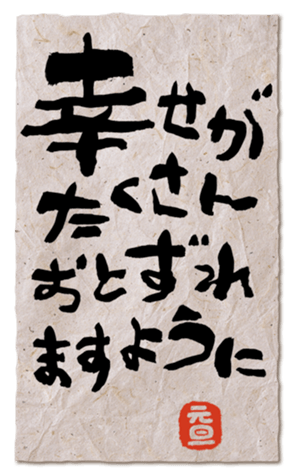 幸せが
たくさん
おとずれ
ますように
元旦